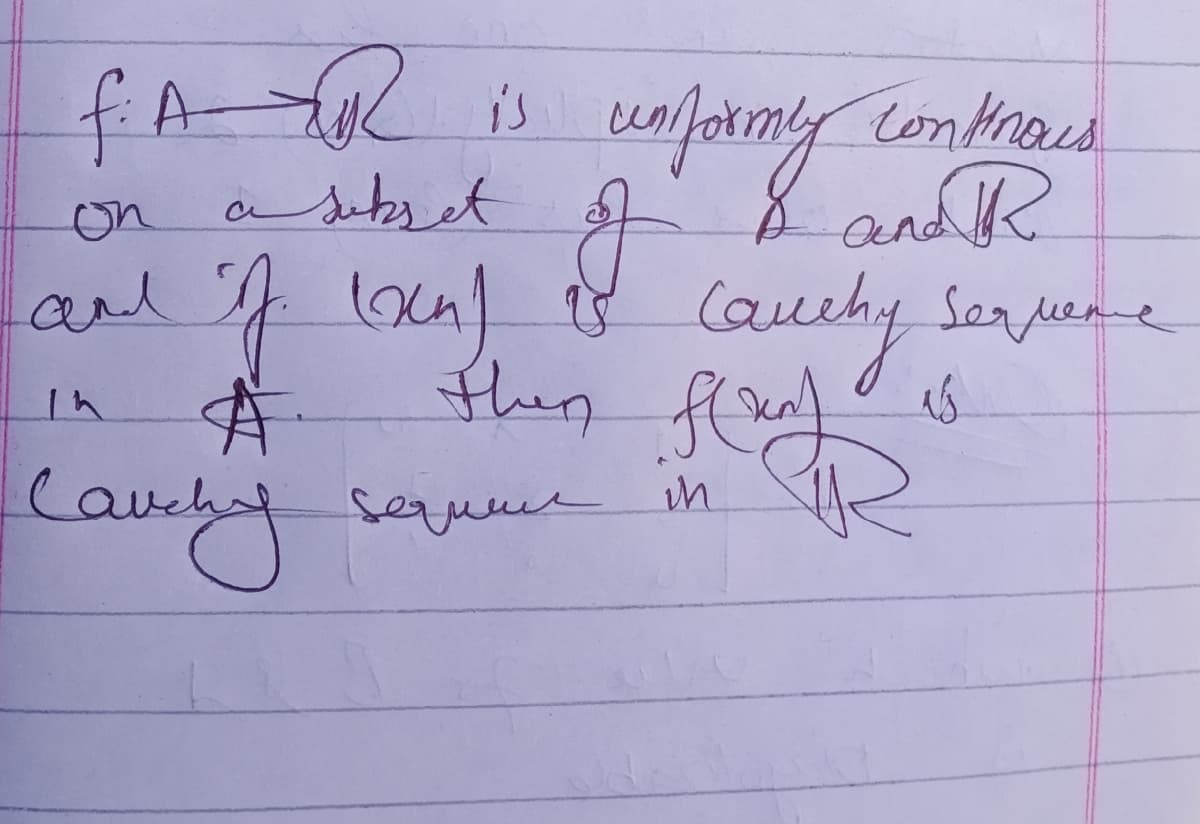 f: A → ℝ is uniformly continous
on a subset of A and ℝ
and if (xn) is Cauchy sequence
in A. then f(xn) is
Cauchy sequence in ℝ